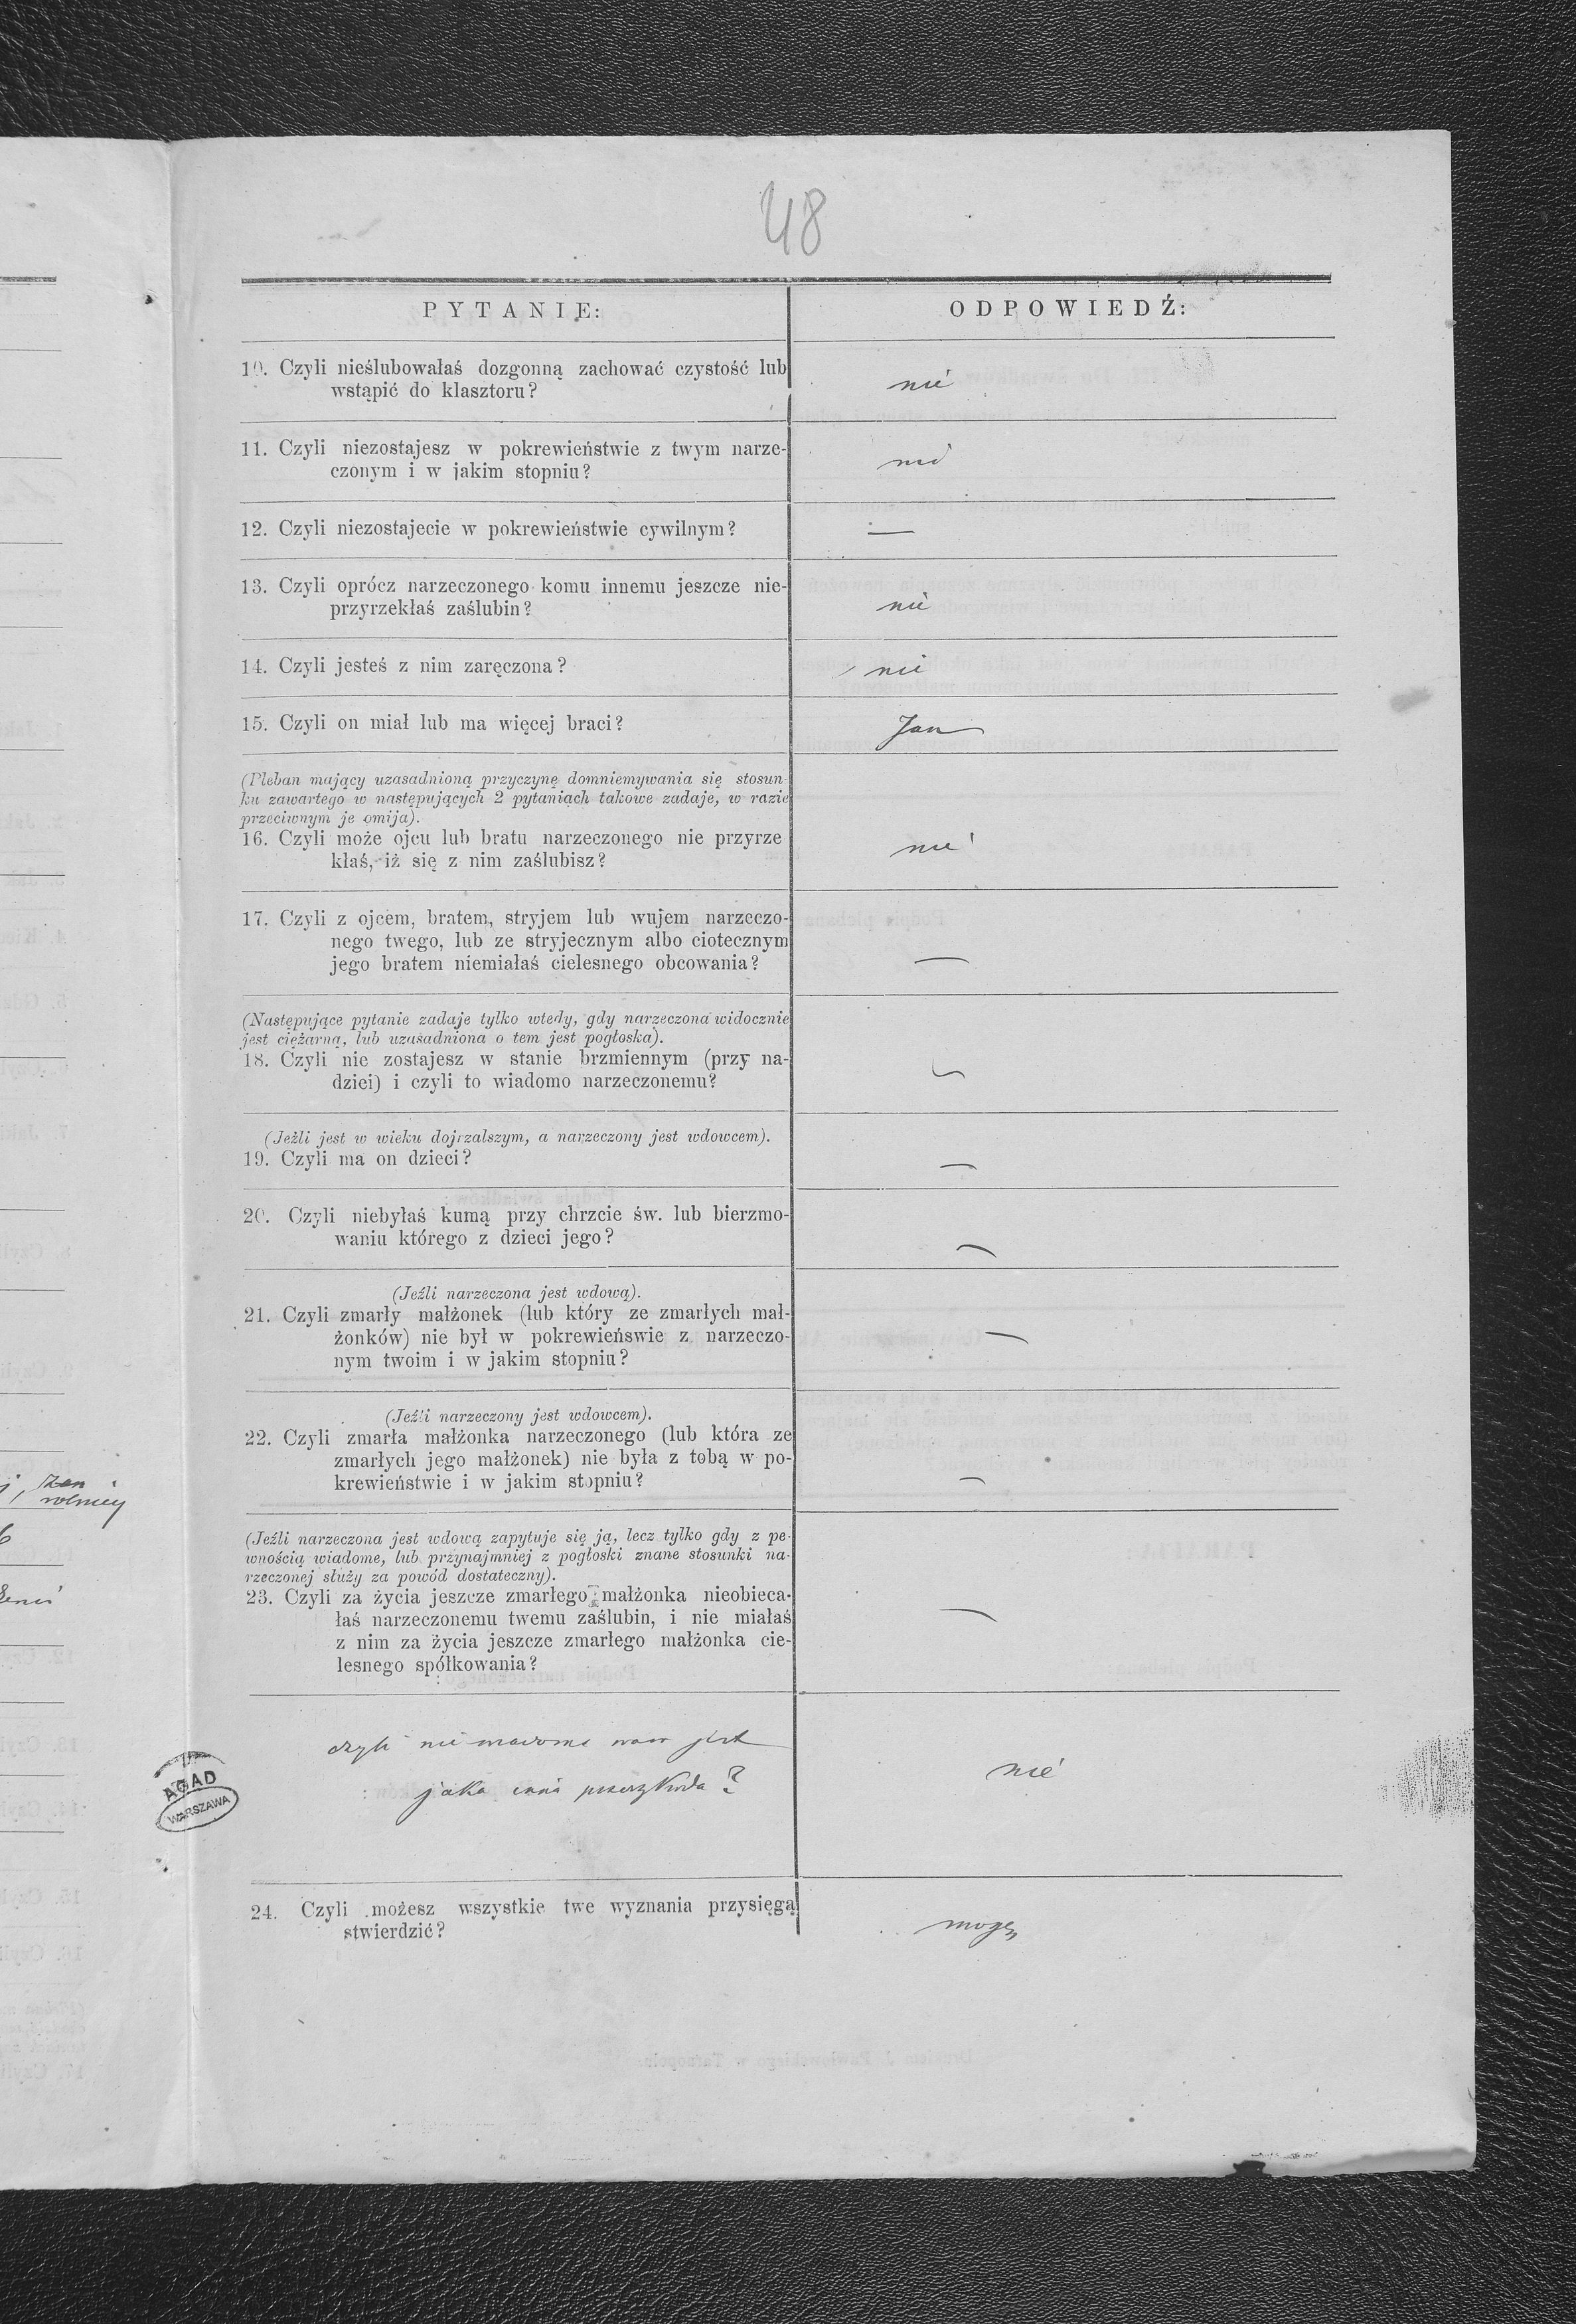 48
PYTANIE:
ODPOWIEDŹ:
10. Czyli nieślubowałaś dozgonną zachować czystość lub
wstąpić do klasztoru?
nie
11. Czyli niezostajesz w pokrewieństwie z twym narze-
czonym i w jakim stopniu?
nie
12. Czyli niezostajecie w pokrewieństwie cywilnym?
—
13. Czyli oprócz narzeczonego komu innemu jeszcze nie-
przyrzekłaś zaślubin?
nie
14. Czyli jesteś z nim zaręczona?
nie
15. Czyli on miał lub ma więcej braci?
Jan
(Pleban mający uzasadnioną przyczynę domniemywania się stosun-
ku zawartego w następujących 2 pytaniach takowe zadaje, w razie
przeciwnym je omija).
16. Czyli może ojcu lub bratu narzeczonego nie przyrze
kłaś, iż się z nim zaślubisz?
nie
17. Czyli z ojcem, bratem, stryjem lub wujem narzeczo-
nego twego, lub ze stryjecznym albo ciotecznym
jego bratem niemiałaś cielesnego obcowania?
—
(Następujące pytanie zadaje tylko wtedy, gdy narzeczona widocznie
jest ciężarną, lub uzasadniona o tem jest pogłoska).
18. Czyli nie zostajesz w stanie brzmiennym (przy na-
dziei) i czyli to wiadomo narzeczonemu?
—
(Jeżli jest w wieku dojrzalszym, a narzeczony jest wdowcem).
19. Czyli ma on dzieci?
—
20. Czyli niebyłaś kumą przy chrzcie św. lub bierzmo-
waniu którego z dzieci jego?
—
(Jeźli narzeczona jest wdową).
21. Czyli zmarły małżonek (lub który ze zmarłych mał-
żonków) nie był w pokrewieńswie z narzeczo-
nym twoim i w jakim stopniu?
—
(Jeźli narzeczony jest wdowcem).
22. Czyli zmarła małżonka narzeczonego (lub która ze
zmarłych jego małżonek) nie była z tobą w po-
krewieństwie i w jakim stopniu?
—
(Jeźli narzeczona jest wdową zapytuje się ją, lecz tylko gdy z pe-
wnością wiadome, lub przynajmniej z pogłoski znane stosunki na-
rzeczonej służy za powód dostateczny).
23. Czyli za życia jeszcze zmarłego małżonka nieobieca-
łaś narzeczonemu twemu zaślubin, i nie miałaś
z nim za życia jeszcze zmarłego małżonka cie-
lesnego spółkowania?
—
czyli nie wiadoma wam jest
jaka inna przeszkoda?
nie
24. Czyli możesz wszystkie twe wyznania przysięgą
stwierdzić?
mogę
AGAD
WARSZAWA